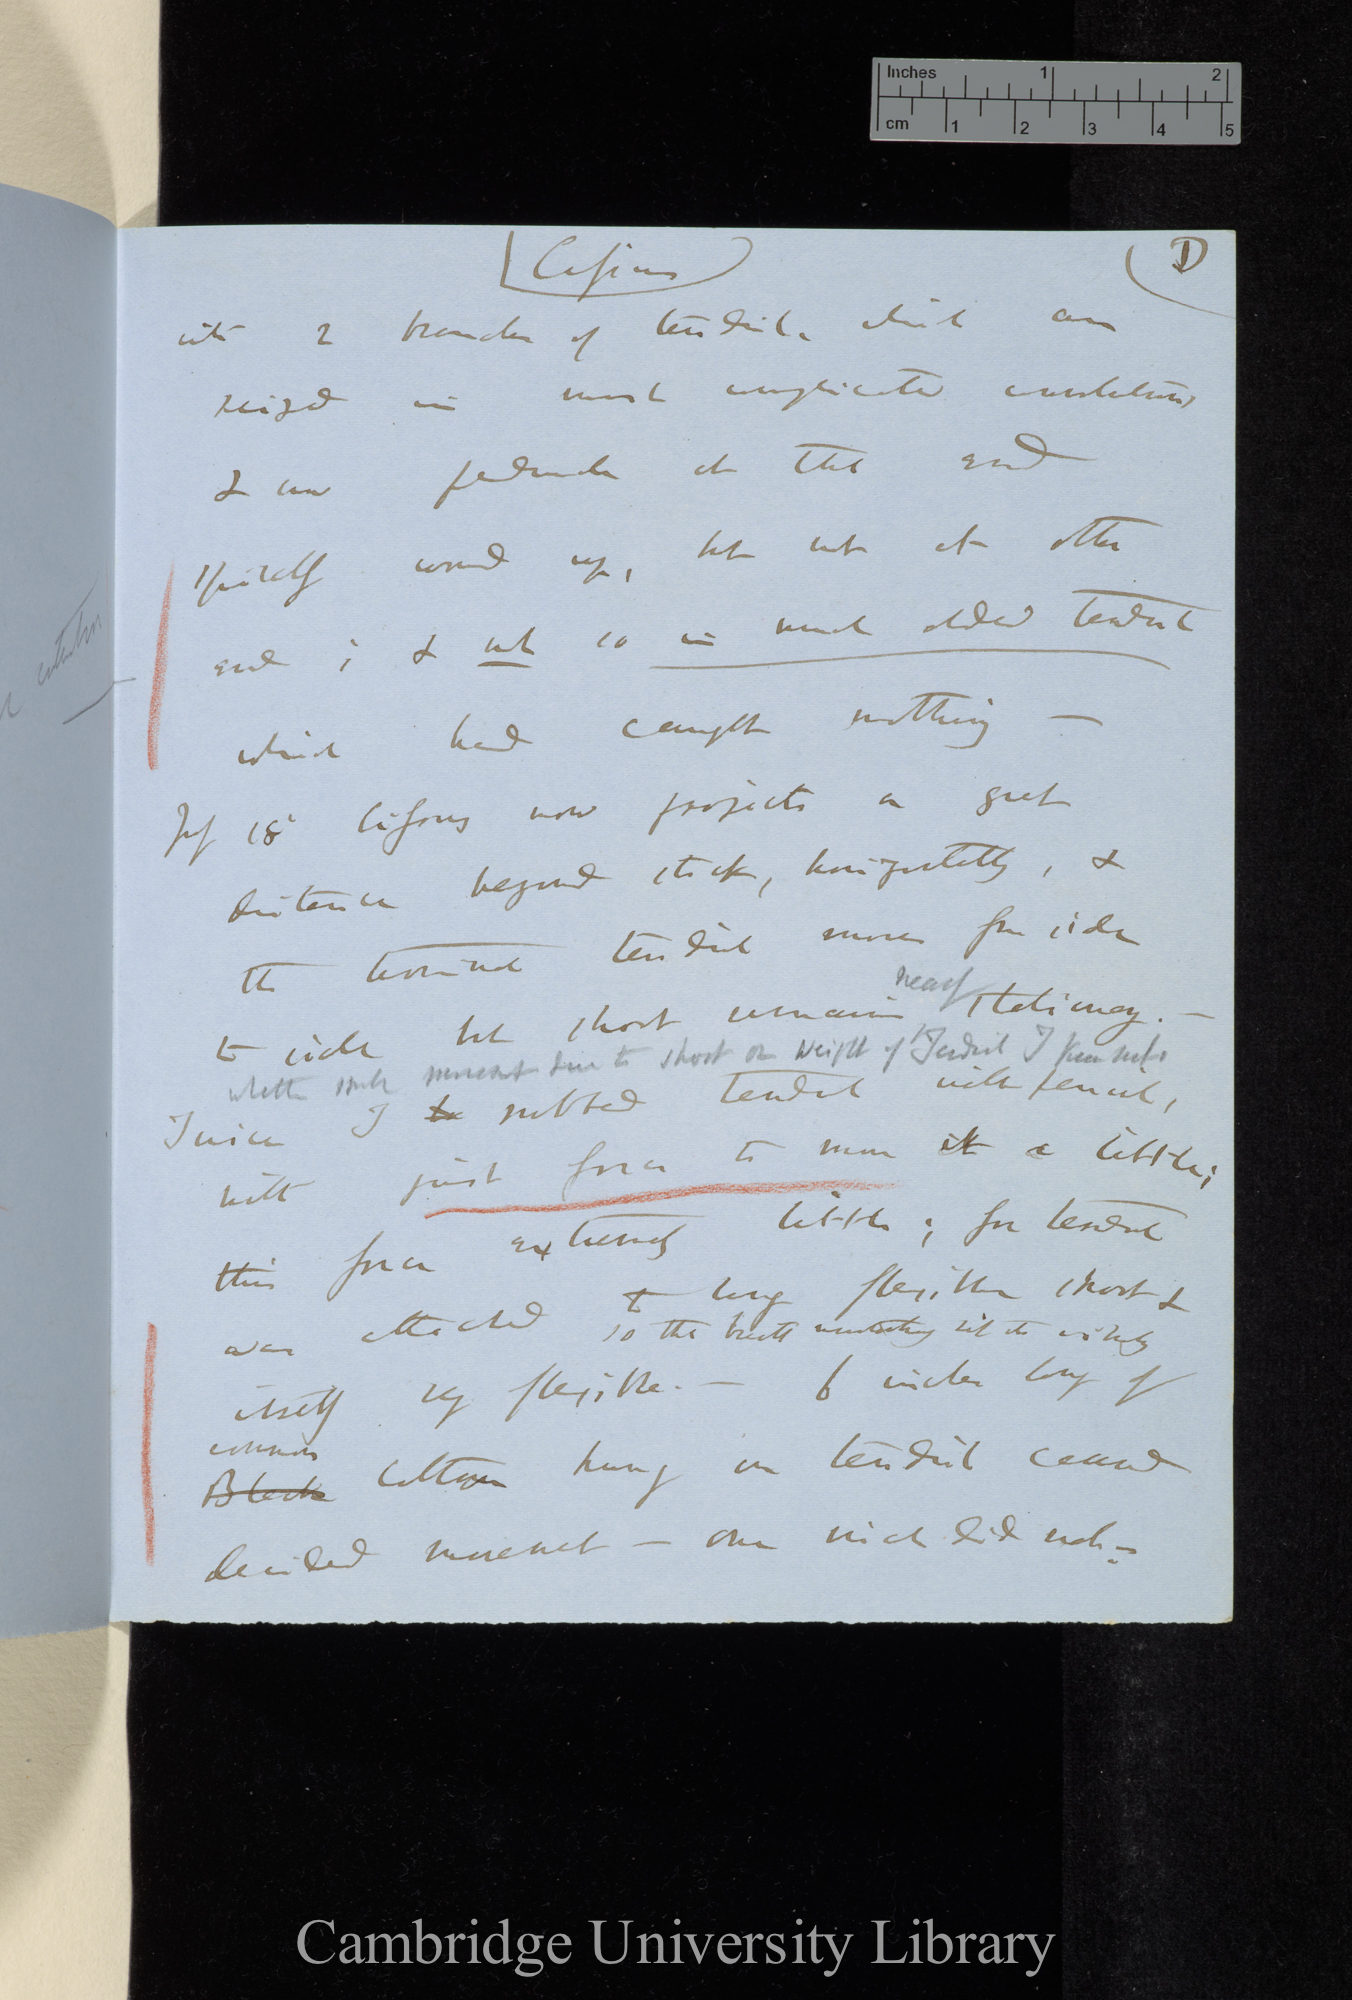 Inches 1 2
cm 1 2 3 4 5
D
into 2 branches of tendril, which are
seized in most complicated convolutions
& are peduncle at this end
spirally wound up, but not at other
end; & not so in much older tendril
which had caught nothing —
July 18 Cissus now projects a great
distance beyond stick, horizontally, &
the terminal tendril moves from side
nearly
to side but shoot remains stationary. —
whether such movement due to shoot or weight of Tendril I know not
Twice I to rubbed tendril with pencil,
with just force to move it a little;
this force extremely little; for tendril
was attached to long flexible shoot &
so the
itself very flexible. — 6 inches long of
common
Black Cotton hung on tendril caused
decided movement — one inch did not. —
Cambridge University Library